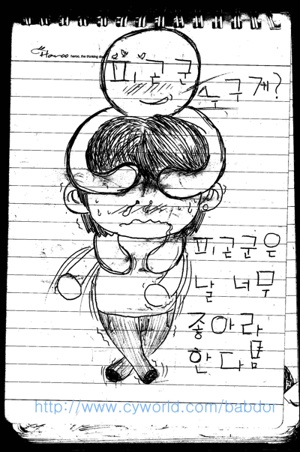 피곤군
누구게?
피곤군은
날 너무
좋아라
http://www.cyworld.com/babdol